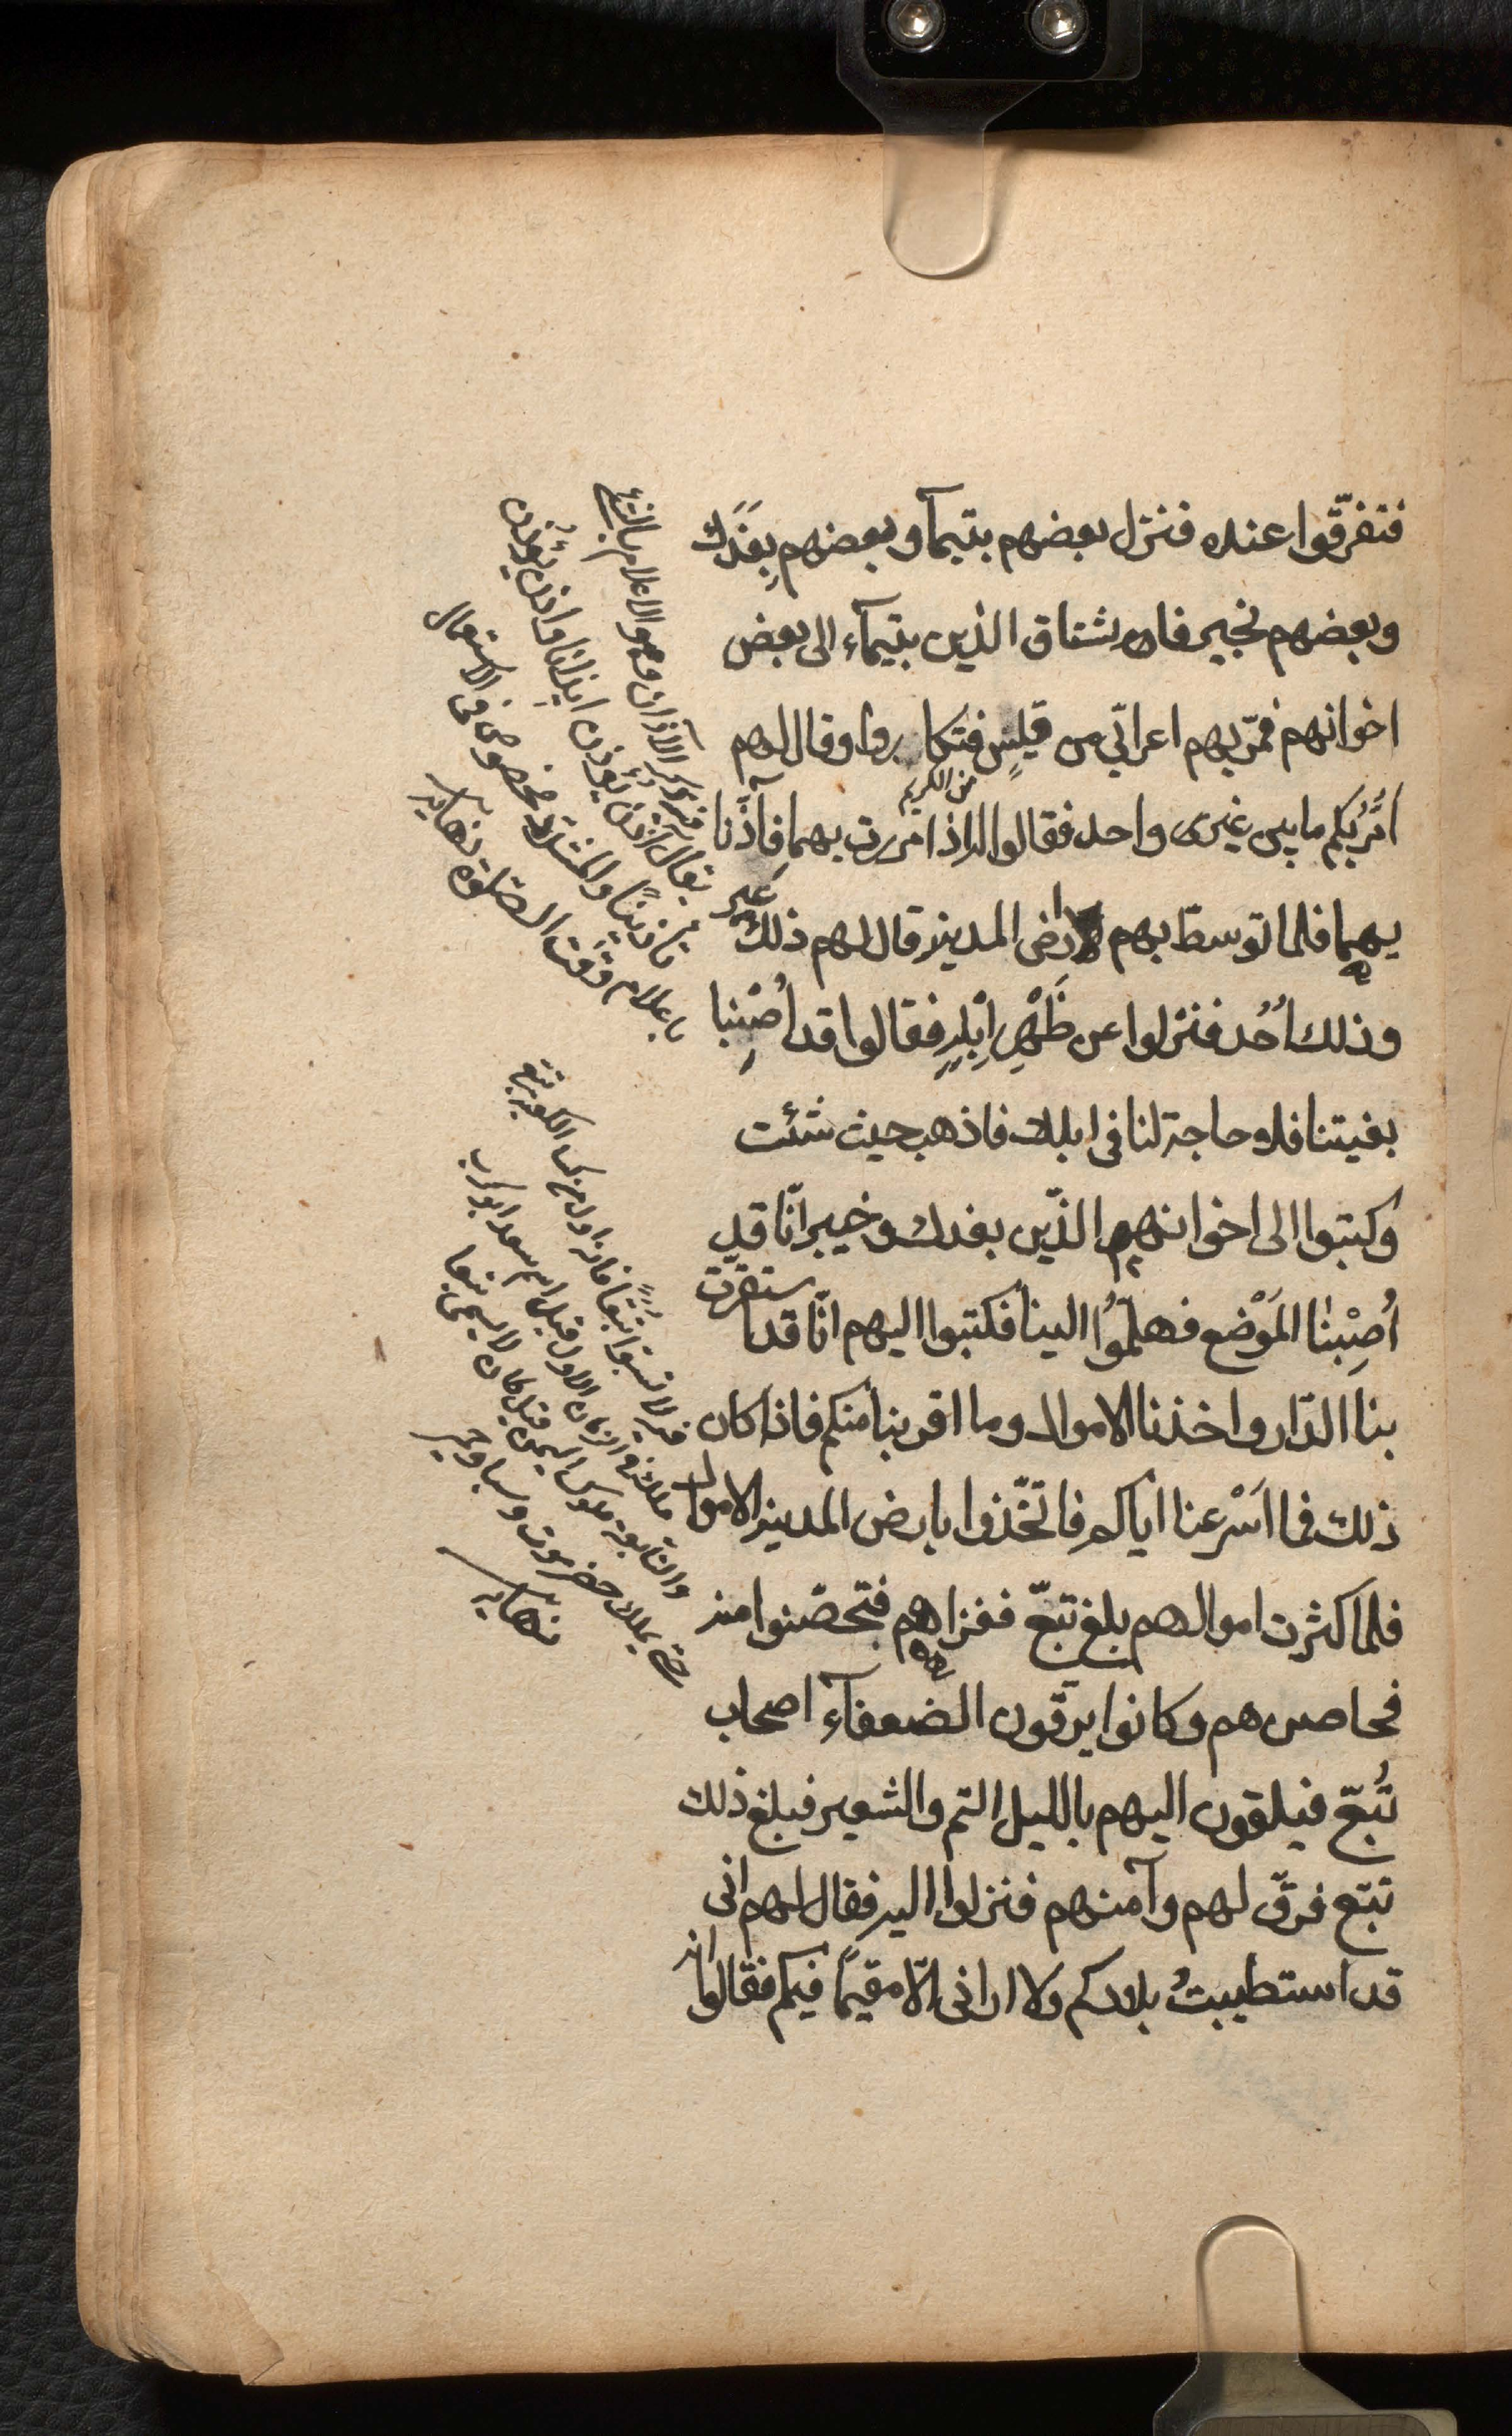 فتفرّقوا عنده فنزل بعضهم بتيمآ وبعضهم بِفَدَك
وبعضهم بخيبر فاشتاق الذين بتيمآء الى بعض
اخوانهم فمرّ بهم اعرابّي من قيسٍ فتكاروا وقال لهم
من الكرى
اَمُرُّ بكم ما بين عَير واحد فقالوا له اذا مررت بهما فآذنّا
عَير
بهما فلما توسط بهم ارض المدينة قال لهم ذلك
وذلك اُحُد فنزلوا عن ظَهْرِ اِبْلِهِ فقالوا قد اُصِبْنا
بغيتنا فلا حاجة لنا فى ابلك فاذهب حيث شئت
وكتبوا الى اخوانهم الذّين بفدك وخيبر انّا قد
اُصِبْنٰا المَوْضع فهلمّوُا الينا فكتبوا اليهم انّا قد استقرّت
بنا الدّار واخذنا الاموال وما اقربنا منكم فاذا كان
ذلك فما اَسْرعنا اياكم فاتخّذوا بارض المدينة الاموال
فلما كثرت اموالهم بلغ تبعّ فغزاهم فتحصّنوا منه
فحاصرهم وكانوا يرقّون الضعفآء اصحاب
تُبعّ فيلقون اليهم بالليل التمر والشعير فبلغ ذلك
تبّع فرقّ لهم وآمنهم فنزلوا اليه فقال لهم انى
قد استطيبتُ بلادكم ولا ارانى الّا مقيمًا فيكم فقالوا انه
فيه ذكر الآذان وهو الاعلام بالشئ
يقال آذن يؤذن ايذانا واذن يُؤذّن
تاذينًا والمشدد مخصوص فى الاستعمال
باعلام وقت الصلوة نهايه
فيه لا تسبّوا تُبّعًا فانه اول من كسى الكعبة تبّع
ملك فى الزمان الاول قيل اسمه سعد ابو كرب
والتبابعة ملوك اليمن قيل كان لا يسمى تبعا
حتى يملك حضرموت وسبا وحمير
نهايه